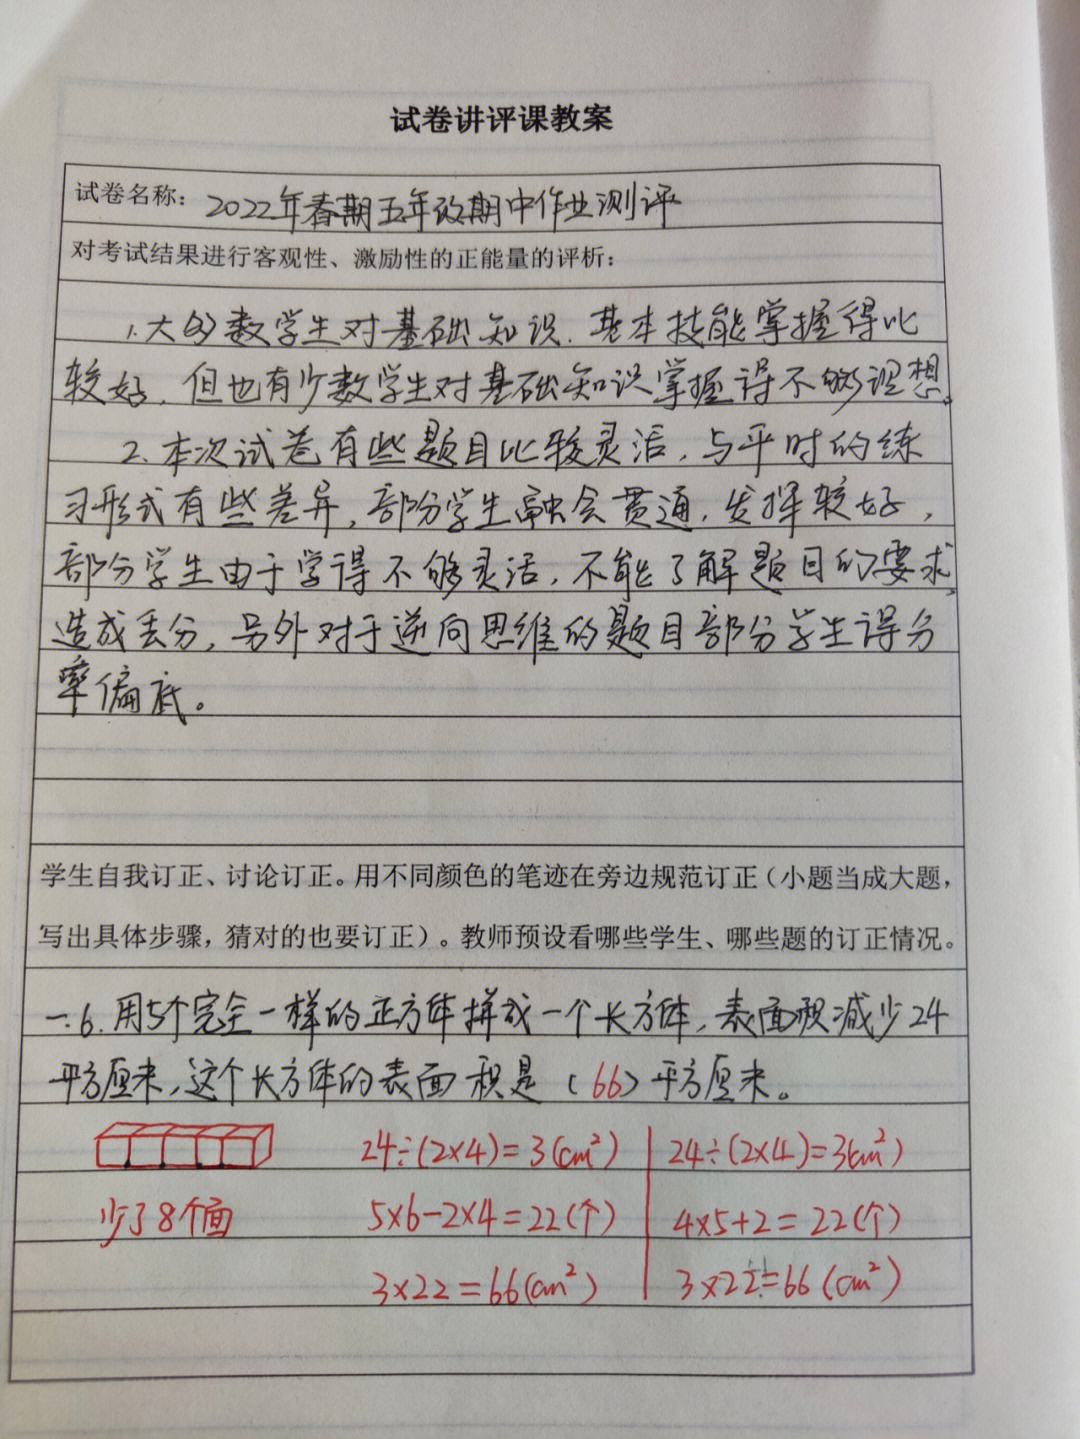 试卷讲评课教案
试卷名称：2022年春期五年级期中作业测评
对考试结果进行客观性、激励性的正能量的评析：
1.大多数学生对基础知识、基本技能掌握得比
较好，但也有少数学生对基础知识掌握得不够理想。
2.本次试卷有些题目比较灵活，与平时的练
习形式有些差异，部分学生融会贯通，发挥较好，
部分学生由于学得不够灵活，不能了解题目的要求，
造成丢分，另外对于逆向思维的题目部分学生得分
率偏底。
学生自我订正、讨论订正。用不同颜色的笔迹在旁边规范订正（小题当成大题，
写出具体步骤，猜对的也要订正）。教师预设看哪些学生、哪些题的订正情况。
一.6.用5个完全一样的正方体拼成一个长方体，表面积减少24
平方厘米，这个长方体的表面积是（66）平方厘米。
24÷(2×4)=3(cm²) 24÷(2×4)=3(cm²)
少了8个面 5×6-2×4=22(个) 4×5+2=22(个)
3×22=66(cm²) 3×22=66(cm²)